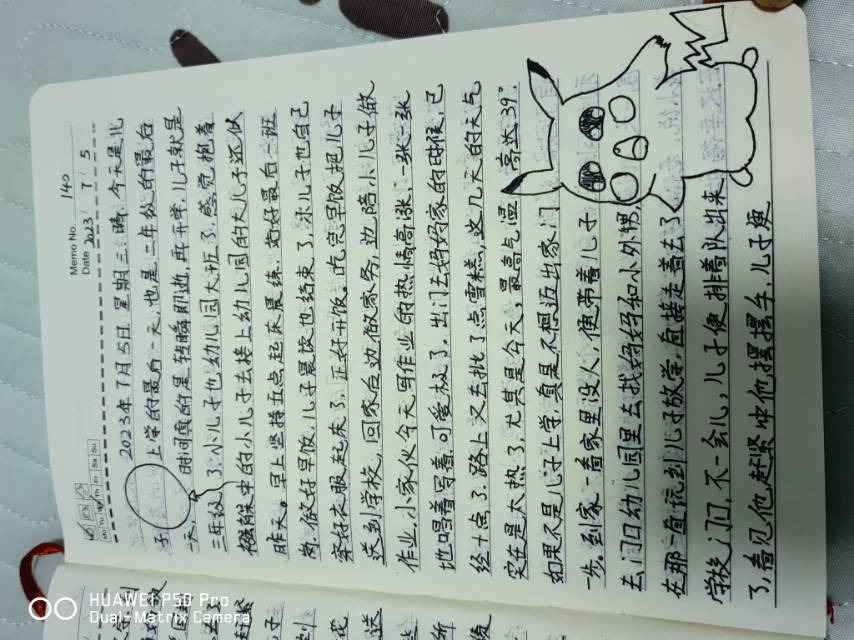 Memo No. 140
Date 2023 / 7 / 5
Mo Tu We Th Fr Sa Su
2023年7月5日 星期三 晴 今天是儿
子上学的最后一天,也是二年级的最后
一天,时间真的是转瞬即逝,再开学,儿子就是
三年级了,小儿子也幼儿园大班了,感觉抱着
襁褓中的小儿子去接上幼儿园的大儿子还似
昨天。早上坚持五点起床晨练,站好最后一班
岗,做好早饭,儿子晨读也结束了,小儿子也自己
穿好衣服起床了,正好开饭。吃完早饭,把儿子
送到学校,回家后边做家务,边陪小儿子做
作业,小家伙今天写作业的热情高涨,一张一张
地唱着写着,可爱极了,出门去妈妈家的时候,已
经十点了,路上又去批了点雪糕,这几天的天气
实在是太热了,尤其是今天,最高气温高达39°
如果不是儿子上学,真是不想迈出家门
一步。到家一看家里没人,便带着儿子
去门口幼儿园里去找妈妈和小外甥,
在那一直玩到儿子放学,直接走着去了
学校门口,不一会儿,儿子便排着队出来
了,看见他赶紧冲他摆摆手,儿子便
HUAWEI P50 Pro
Dual-Matrix Camera